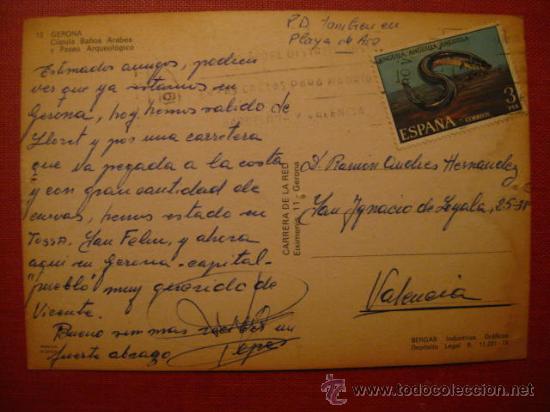 13 GERONA
Cúpula Baños Arabes
y Paseo Arqueológico
P.D. Tambien en
Playa de Aro
Estimados amigos, podreis
ver que ya estamos en
Gerona, hoy hemos salido de
Lloret y por una carretera
que va pegada a la costa
y con gran cantidad de
curvas, hemos estado en
Tossa. San Feliu, y ahora
aqui en Gerona-capital-
"pueblo" muy querido de
Vicente.
Bueno sin mas recibir un
fuerte abrazo
Pepe
CARRERA DE LA RED
Eiximenis, 11 - Gerona
ANGUILA, ANGUILLA ANGUILLA
3
PTS
ESPAÑA
CORREOS
D. Ramón Andres Hernandez
San Ignacio de Loyola, 25-3ª
Valencia
BERGAS Industrias Gráficas
Depósito Legal B.
todocoleccion.net